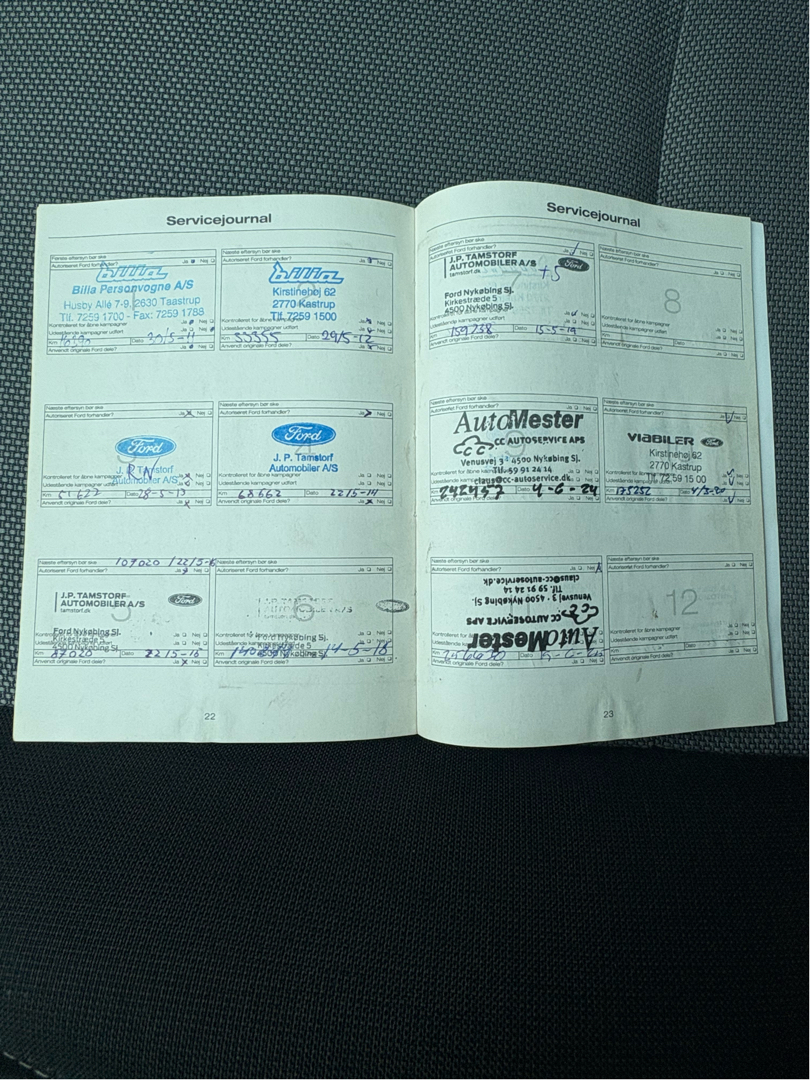 Servicejournal
Næste eftersyn bør ske
Autoriseret Ford forhandler? Ja Nej
bilia
Bilia Personvogne A/S
Husby Allé 7-9, 2630 Taastrup
Tlf. 7259 1700 - Fax: 7259 1788
Kontrolleret for åbne kampagner Ja Nej
Udestående kampagner udført Ja Nej
Km Dato 30/5-11
Anvendt originale Ford dele? Ja Nej
Næste eftersyn bør ske
Autoriseret Ford forhandler? Ja Nej
bilia
Kirstinehøj 62
2770 Kastrup
Tlf. 7259 1500
Kontrolleret for åbne kampagner Ja Nej
Udestående kampagner udført Ja Nej
Km 33355 Dato 29/5-12
Anvendt originale Ford dele? Ja Nej
Næste eftersyn bør ske
Autoriseret Ford forhandler? Ja Nej
Ford
J. P. Tamstorf
RN
Automobiler A/S
Kontrolleret for åbne kampagner Ja Nej
Udestående kampagner udført Ja Nej
Km 51622 Dato 28-5-13
Anvendt originale Ford dele? Ja Nej
Næste eftersyn bør ske
Autoriseret Ford forhandler? Ja Nej
Ford
J. P. Tamstorf
Automobiler A/S
Kontrolleret for åbne kampagner Ja Nej
Udestående kampagner udført Ja Nej
Km 68662 Dato 22/5-14
Anvendt originale Ford dele? Ja Nej
Næste eftersyn bør ske 107020 /22/5-6
Autoriseret Ford forhandler? Ja Nej
J.P. TAMSTORF
AUTOMOBILER A/S
tamstorf.dk
Ford
5
Ford Nykøbing Sj.
Kirkestræde 5
4500 Nykøbing Sj.
Km 87020 Dato 22/5-15
Anvendt originale Ford dele? Ja Nej
Næste eftersyn bør ske
Autoriseret Ford forhandler? Ja Nej
6
Ford Nykøbing Sj.
Kirkestræde 5
4500 Nykøbing Sj.
14-5-18
Anvendt originale Ford dele? Ja Nej
22
Servicejournal
Næste eftersyn bør ske
Autoriseret Ford forhandler? Ja Nej
J.P. TAMSTORF
AUTOMOBILER A/S
tamstorf.dk
Ford
+5
Ford Nykøbing Sj.
Kirkestræde 5
4500 Nykøbing Sj.
Udestående kampagner udført Ja Nej
Km 159738 Dato 15-5-19
Anvendt originale Ford dele? Ja Nej
Næste eftersyn bør ske
Autoriseret Ford forhandler? Ja Nej
8
Kontrolleret for åbne kampagner Ja Nej
Udestående kampagner udført Ja Nej
Km Dato
Anvendt originale Ford dele? Ja Nej
Næste eftersyn bør ske
Autoriseret Ford forhandler? Ja Nej
AutoMester
CC AUTOSERVICE APS
Venusvej 3 · 4500 Nykøbing Sj.
Tlf. 59 91 24 14
claus@cc-autoservice.dk
Km 242457 Dato 4-6-24
Anvendt originale Ford dele? Ja Nej
Næste eftersyn bør ske
Autoriseret Ford forhandler? Ja Nej
VIABILER
Ford
Kirstinehøj 62
2770 Kastrup
Tlf. 72 59 15 00
Kontrolleret for åbne kampagner Ja Nej
Udestående kampagner udført Ja Nej
Km 175252 Dato 4/3-20
Anvendt originale Ford dele? Ja Nej
Næste eftersyn bør ske
Autoriseret Ford forhandler? Ja Nej
AutoMester
CC AUTOSERVICE APS
Venusvej 3 · 4500 Nykøbing Sj.
Tlf. 59 91 24 14
claus@cc-autoservice.dk
Kontrolleret for åbne Ja Nej
Km Dato
Anvendt originale Ford dele? Ja Nej
Næste eftersyn bør ske
Autoriseret Ford forhandler? Ja Nej
12
Kontrolleret for åbne kampagner Ja Nej
Udestående kampagner udført Ja Nej
Km Dato
Anvendt originale Ford dele? Ja Nej
23